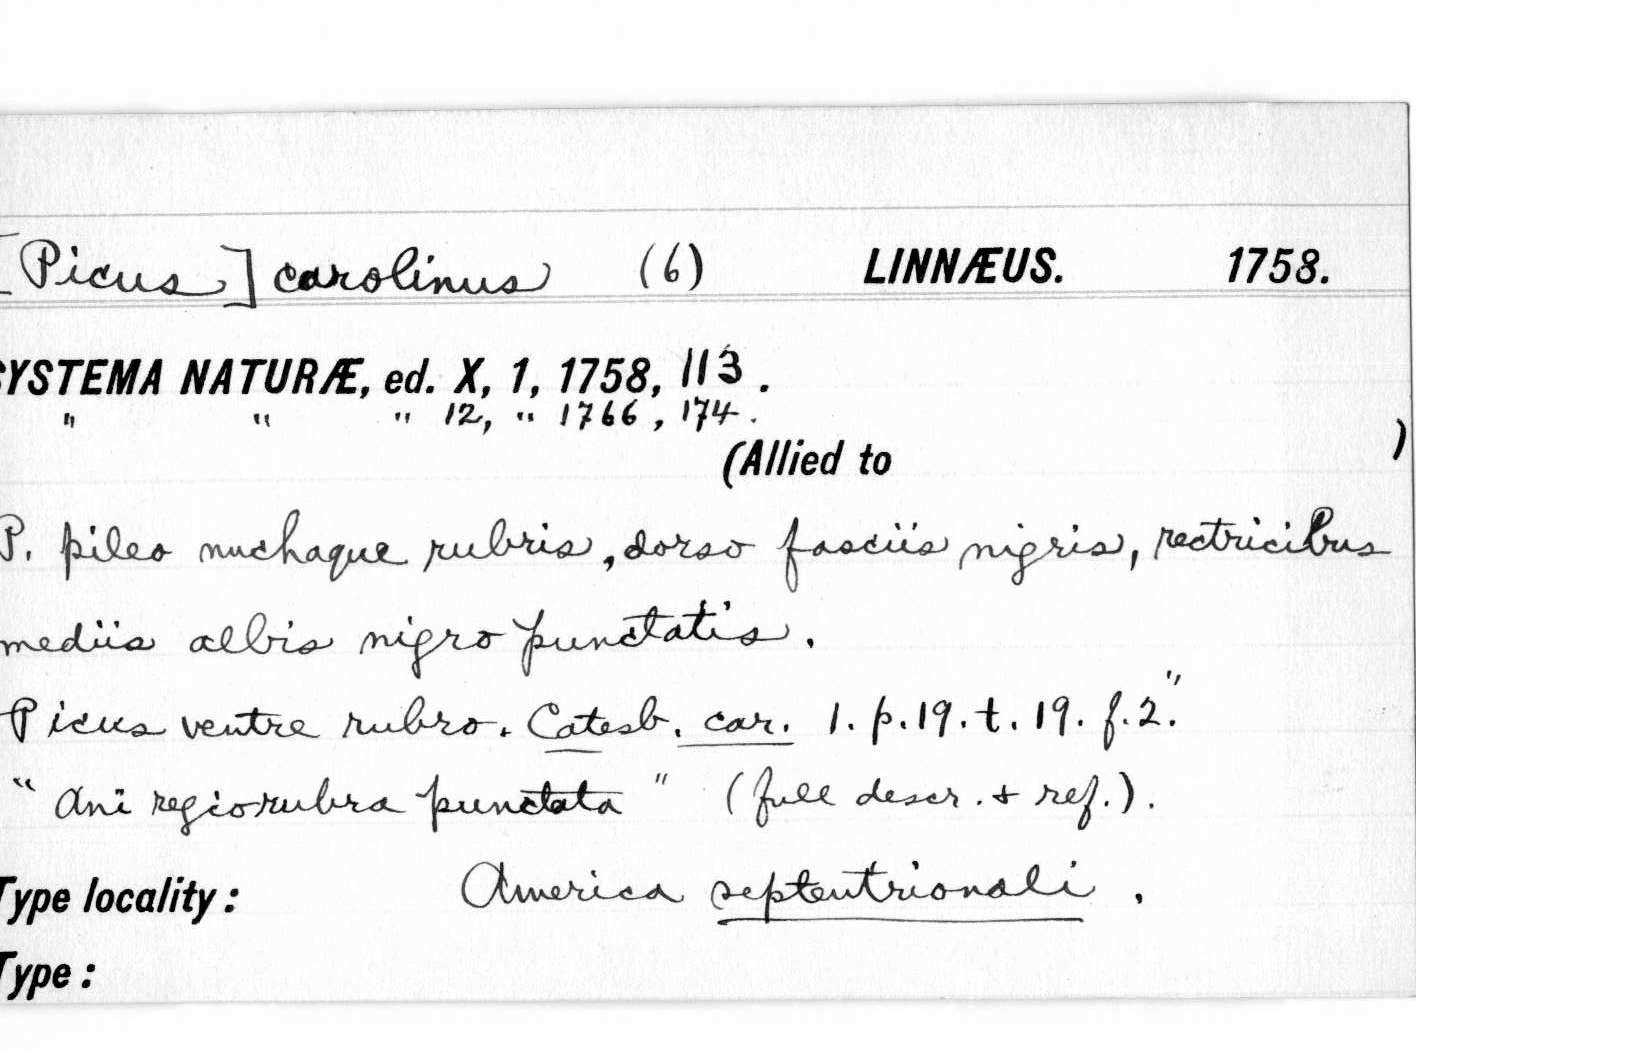 [Picus] carolinus (6) LINNÆUS. 1758.
SYSTEMA NATURÆ, ed. X, 1, 1758, 113.
" " " 12, " 1766, 174.
(Allied to )
P. pileo nuchaque rubris, dorso fasciis nigris, rectricibus
mediis albis nigro punctatis.
Picus ventre rubro. Catesb. car. 1. p. 19. t. 19. f. 2."
" Ani regio rubra punctata " (full descr. & ref.).
Type locality: America septentrionali.
Type: